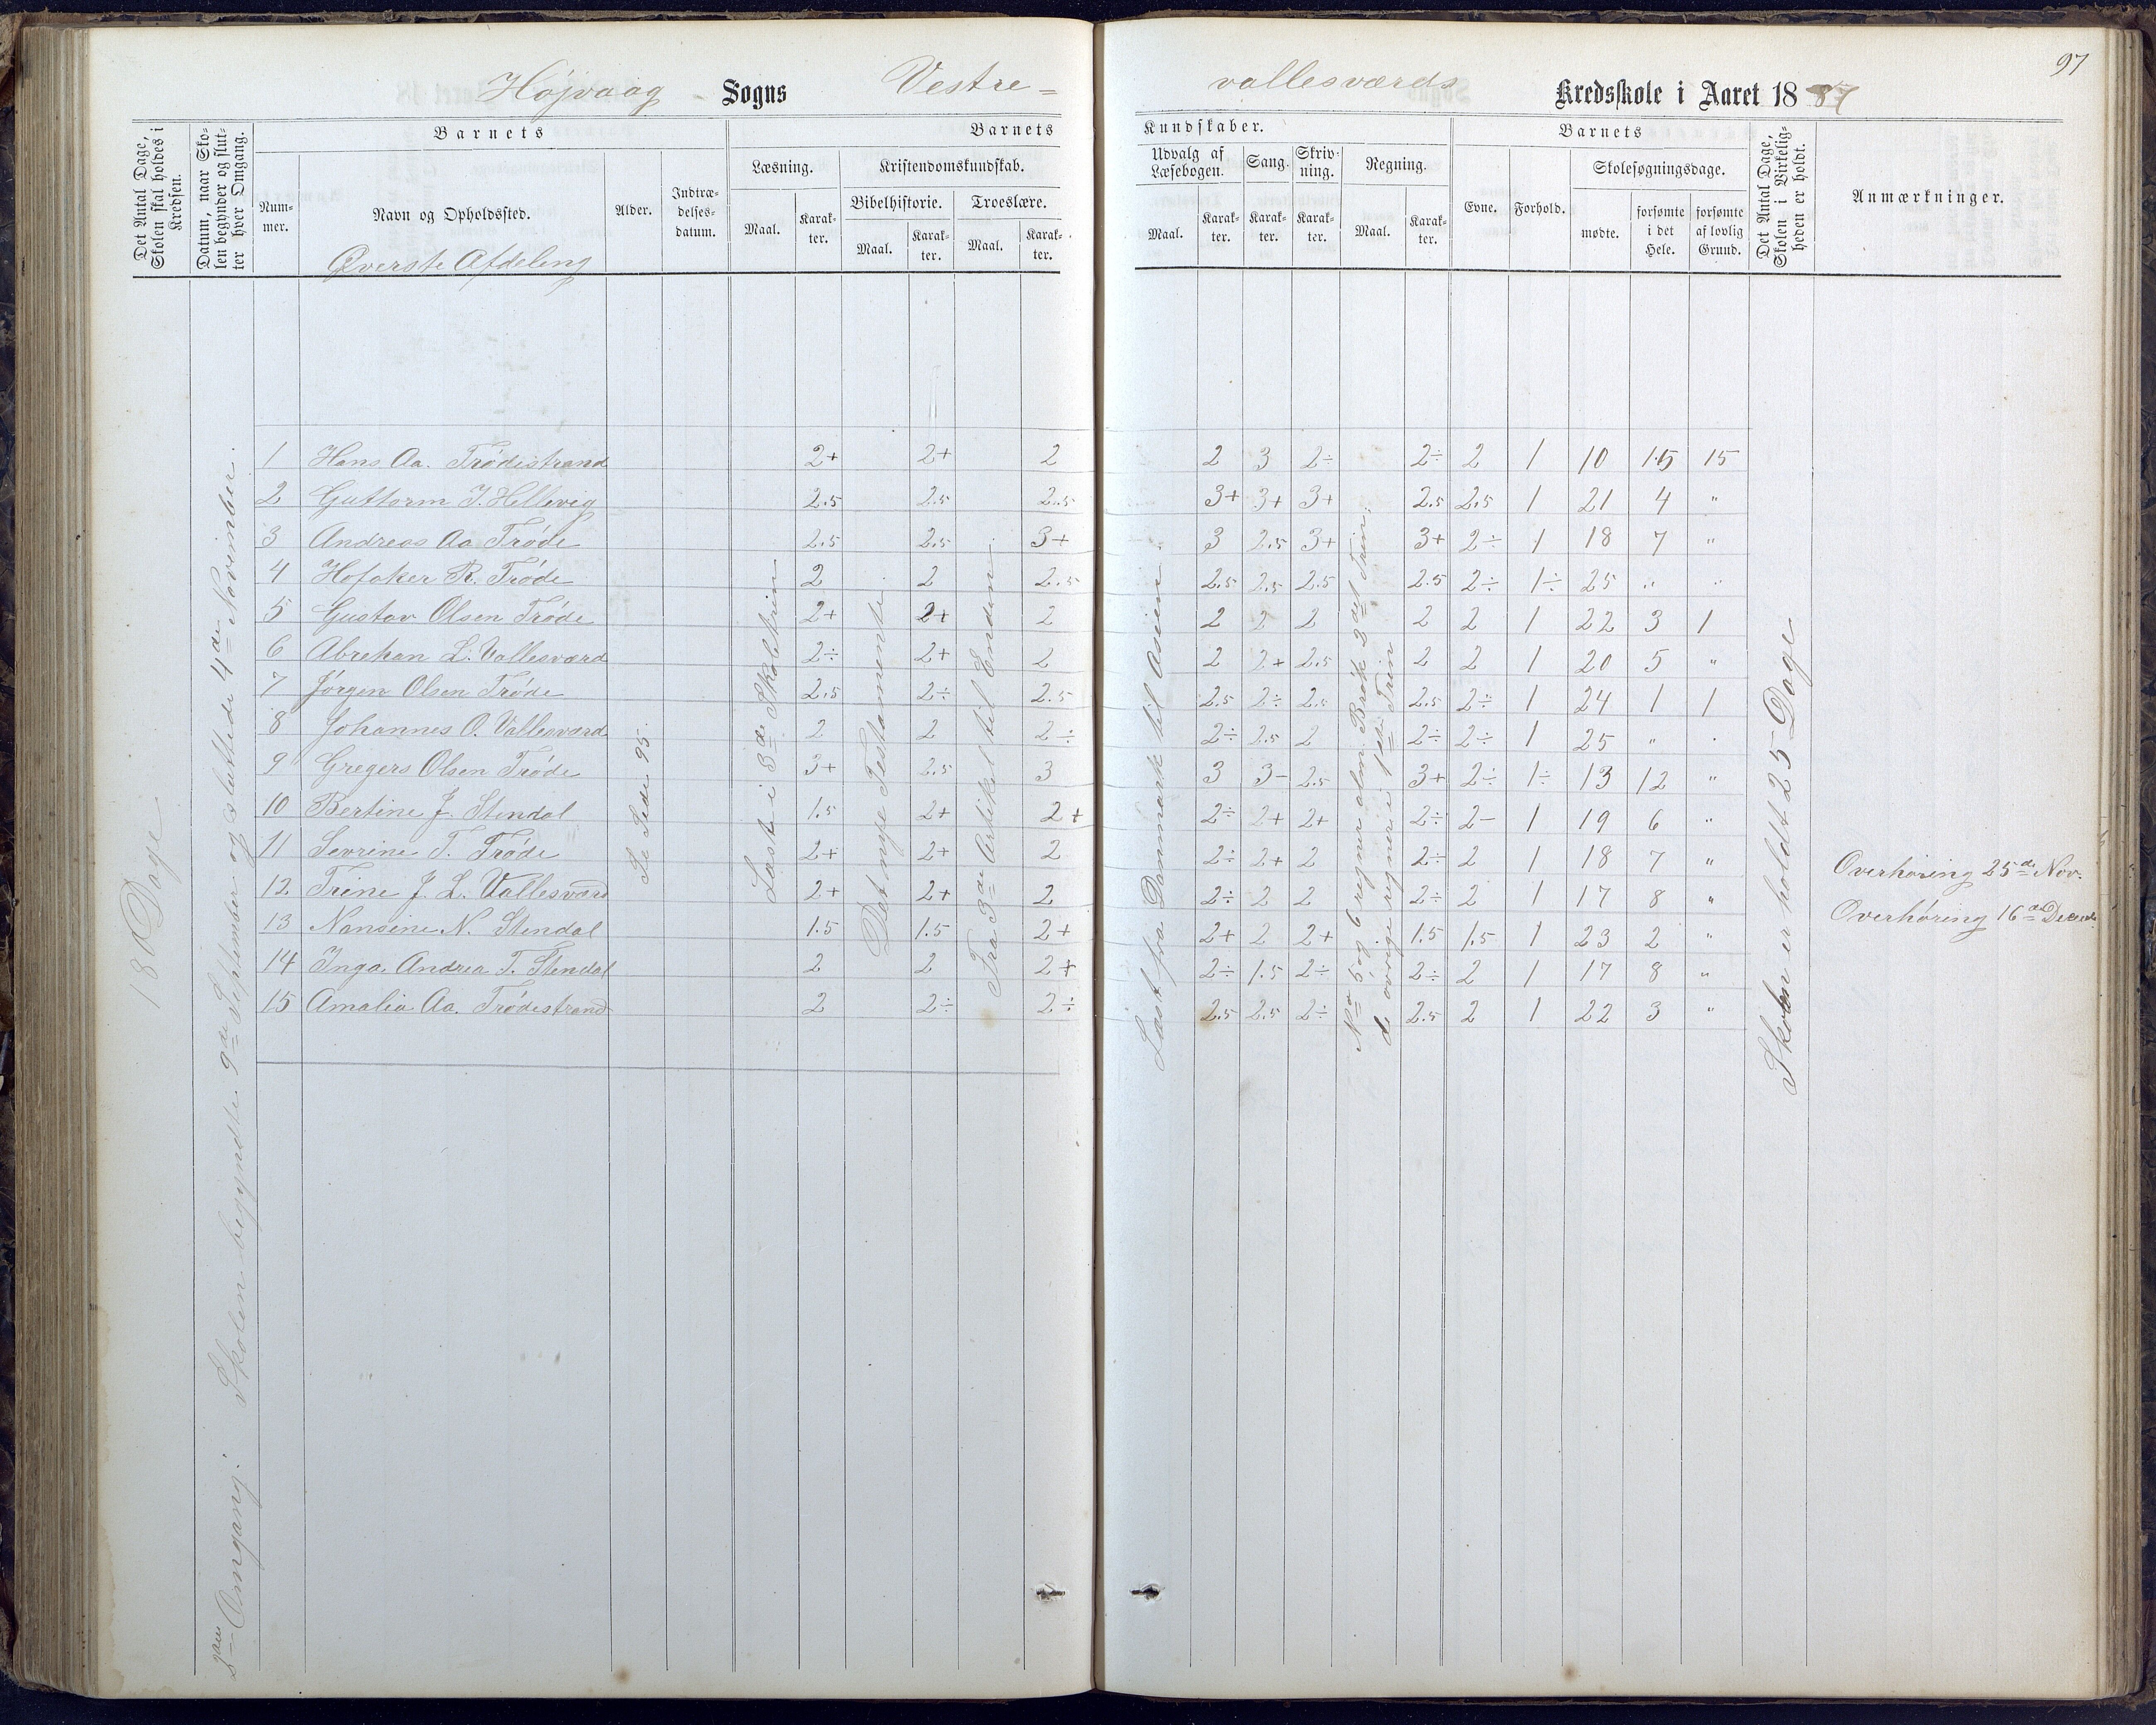 97
Højvaag Sogns Vestre=
vallesværds Kredsskole i Aaret 1887
Det Antal Dage, Skolen skal holdes i Kredsen.
Datum, naar Skolen begynder og slutter hver Omgang.
Barnets
Nummer.
Navn og Opholdssted.
Øverste Afdeling
Alder.
Indtrædelsesdatum.
Barnets
Læsning.
Maal. Karakter.
Kristendomskundskab.
Bibelhistorie. Troeslære.
Maal. Karakter. Maal. Karakter.
Kundskaber.
Udvalg af Læsebogen. Sang. Skrivning. Regning.
Maal. Karakter. Karakter. Karakter. Maal. Karakter.
Barnets
Evne. Forhold. Skolesøgningsdage.
mødte. forsømte i det Hele. forsømte af lovlig Grund.
Det Antal Dage, Skolen i Virkeligheden er holdt.
Anmærkninger.
1 Hans Aa. Trødistrand 2+ 2+ 2 2 3 2÷ 2÷ 2 1 10 15 15
2 Guttorm J. Hellevig 2.5 2.5 2.5 3+ 3+ 3+ 2.5 2.5 1 21 4 "
3 Andreas Aa Trøde 2.5 2.5 3+ 3 2.5 3+ 3+ 2÷ 1 18 7 "
4 Hofaker R. Trøde 2 2 2.5 2.5 2.5 2.5 2.5 2÷ 1÷ 25 " "
5 Gustav Olsen Trøde 2+ 2+ 2 2 2 2 2 2 1 22 3 1
6 Abrehan L. Vallesværd 2÷ 2+ 2 2 2+ 2.5 2 2 1 20 5 "
7 Jørgen Olsen Trøde 2.5 2÷ 2.5 2.5 2÷ 2.5 2.5 2÷ 1 24 1 1
8 Johannes O. Vallesværd 2 2 2÷ 2÷ 2.5 2 2÷ 2÷ 1 25 " "
9 Gregers Olsen Trøde 3+ 2.5 3 3 3- 2.5 3+ 2÷ 1÷ 13 12 "
10 Bertine J. Stendal 1.5 2+ 2+ 2÷ 2+ 2+ 2÷ 2- 1 19 6 "
11 Sevrine T. Trøde 2+ 2+ 2 2÷ 2+ 2 2÷ 2 1 18 7 "
12 Trine J. L. Vallesværd 2+ 2+ 2 2÷ 2 2 2÷ 2 1 17 8 "
13 Nansine N. Stendal 1.5 1.5 2+ 2+ 2 2+ 1.5 1.5 1 23 2 "
14 Inga Andrea T. Stendal 2 2 2+ 2÷ 1.5 2÷ 2÷ 2 1 17 8 "
15 Amalia Aa. Trødistrand 2 2÷ 2÷ 2.5 2.5 2÷ 2.5 2 1 22 3 "
18 Dage
2den Omgang: Skolen begyndte 9de September og sluttede 4de November.
Se Side 95.
Læst i 3de Skoletrin
Det nye Testamente
Fra 3de Artikel til Enden
Læst fra Danmark til Asien
No 5 og 6 regner alm. Brøk 2det Trin.
de øvrige regner i 1ste Trin
Skolen er holdt 25 Dage
Overhøring 25de Nov.
Overhøring 16de Decemb.